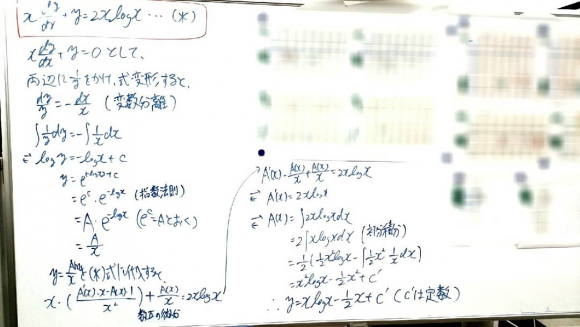 x dy/dx + y = 2x log x … (※)
x dy/dx + y = 0 として、
両辺に 1/y をかけ、式変形すると、
dy/y = - dx/x (変数分離)
∫ 1/y dy = -∫ 1/x dx
⇔ log y = -log x + c
y = e^{-log x + c}
= e^c · e^{-log x} (指数法則)
= A · e^{-log x} (e^c = A とおく)
= A/x
y = A(x)/x を (※) 式に代入すると、
x · ( (A'(x)·x - A(x)·1) / x² ) + A(x)/x = 2x log x
A'(x) - A(x)/x + A(x)/x = 2x log x
⇔ A'(x) = 2x log x
⇔ A(x) = ∫ 2x log x dx
= 2∫ x log x dx (部分積分)
= x² log x - 1/2 x² + c'
∴ y = x log x - 1/2 x + c' (c' は定数)